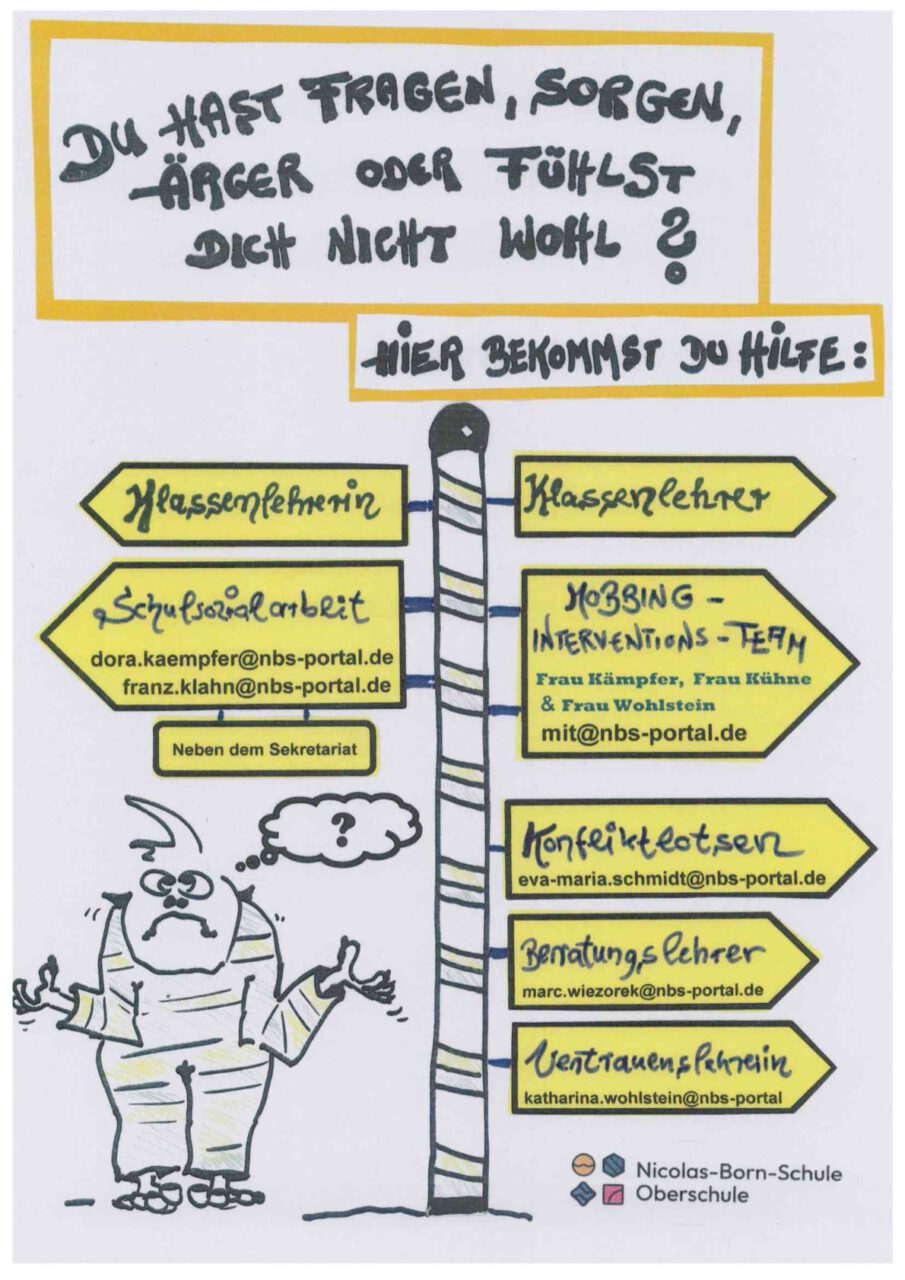 DU HAST FRAGEN, SORGEN,
ÄRGER ODER FÜHLST
DICH NICHT WOHL ?
HIER BEKOMMST DU HILFE:
Klassenlehrerin
Klassenlehrer
Schulsozialarbeit
dora.kaempfer@nbs-portal.de
franz.klahn@nbs-portal.de
Neben dem Sekretariat
MOBBING -
INTERVENTIONS - TEAM
Frau Kämpfer, Frau Kühne
& Frau Wohlstein
mit@nbs-portal.de
?
Konfliktlotsen
eva-maria.schmidt@nbs-portal.de
Beratungslehrer
marc.wiezorek@nbs-portal.de
Vertrauenslehrerin
katharina.wohlstein@nbs-portal
Nicolas-Born-Schule
Oberschule